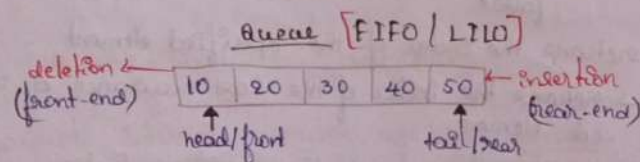 Queue [FIFO / LILO]
deletion
(front-end)
10 20 30 40 50
insertion
(rear-end)
head/front
tail/rear